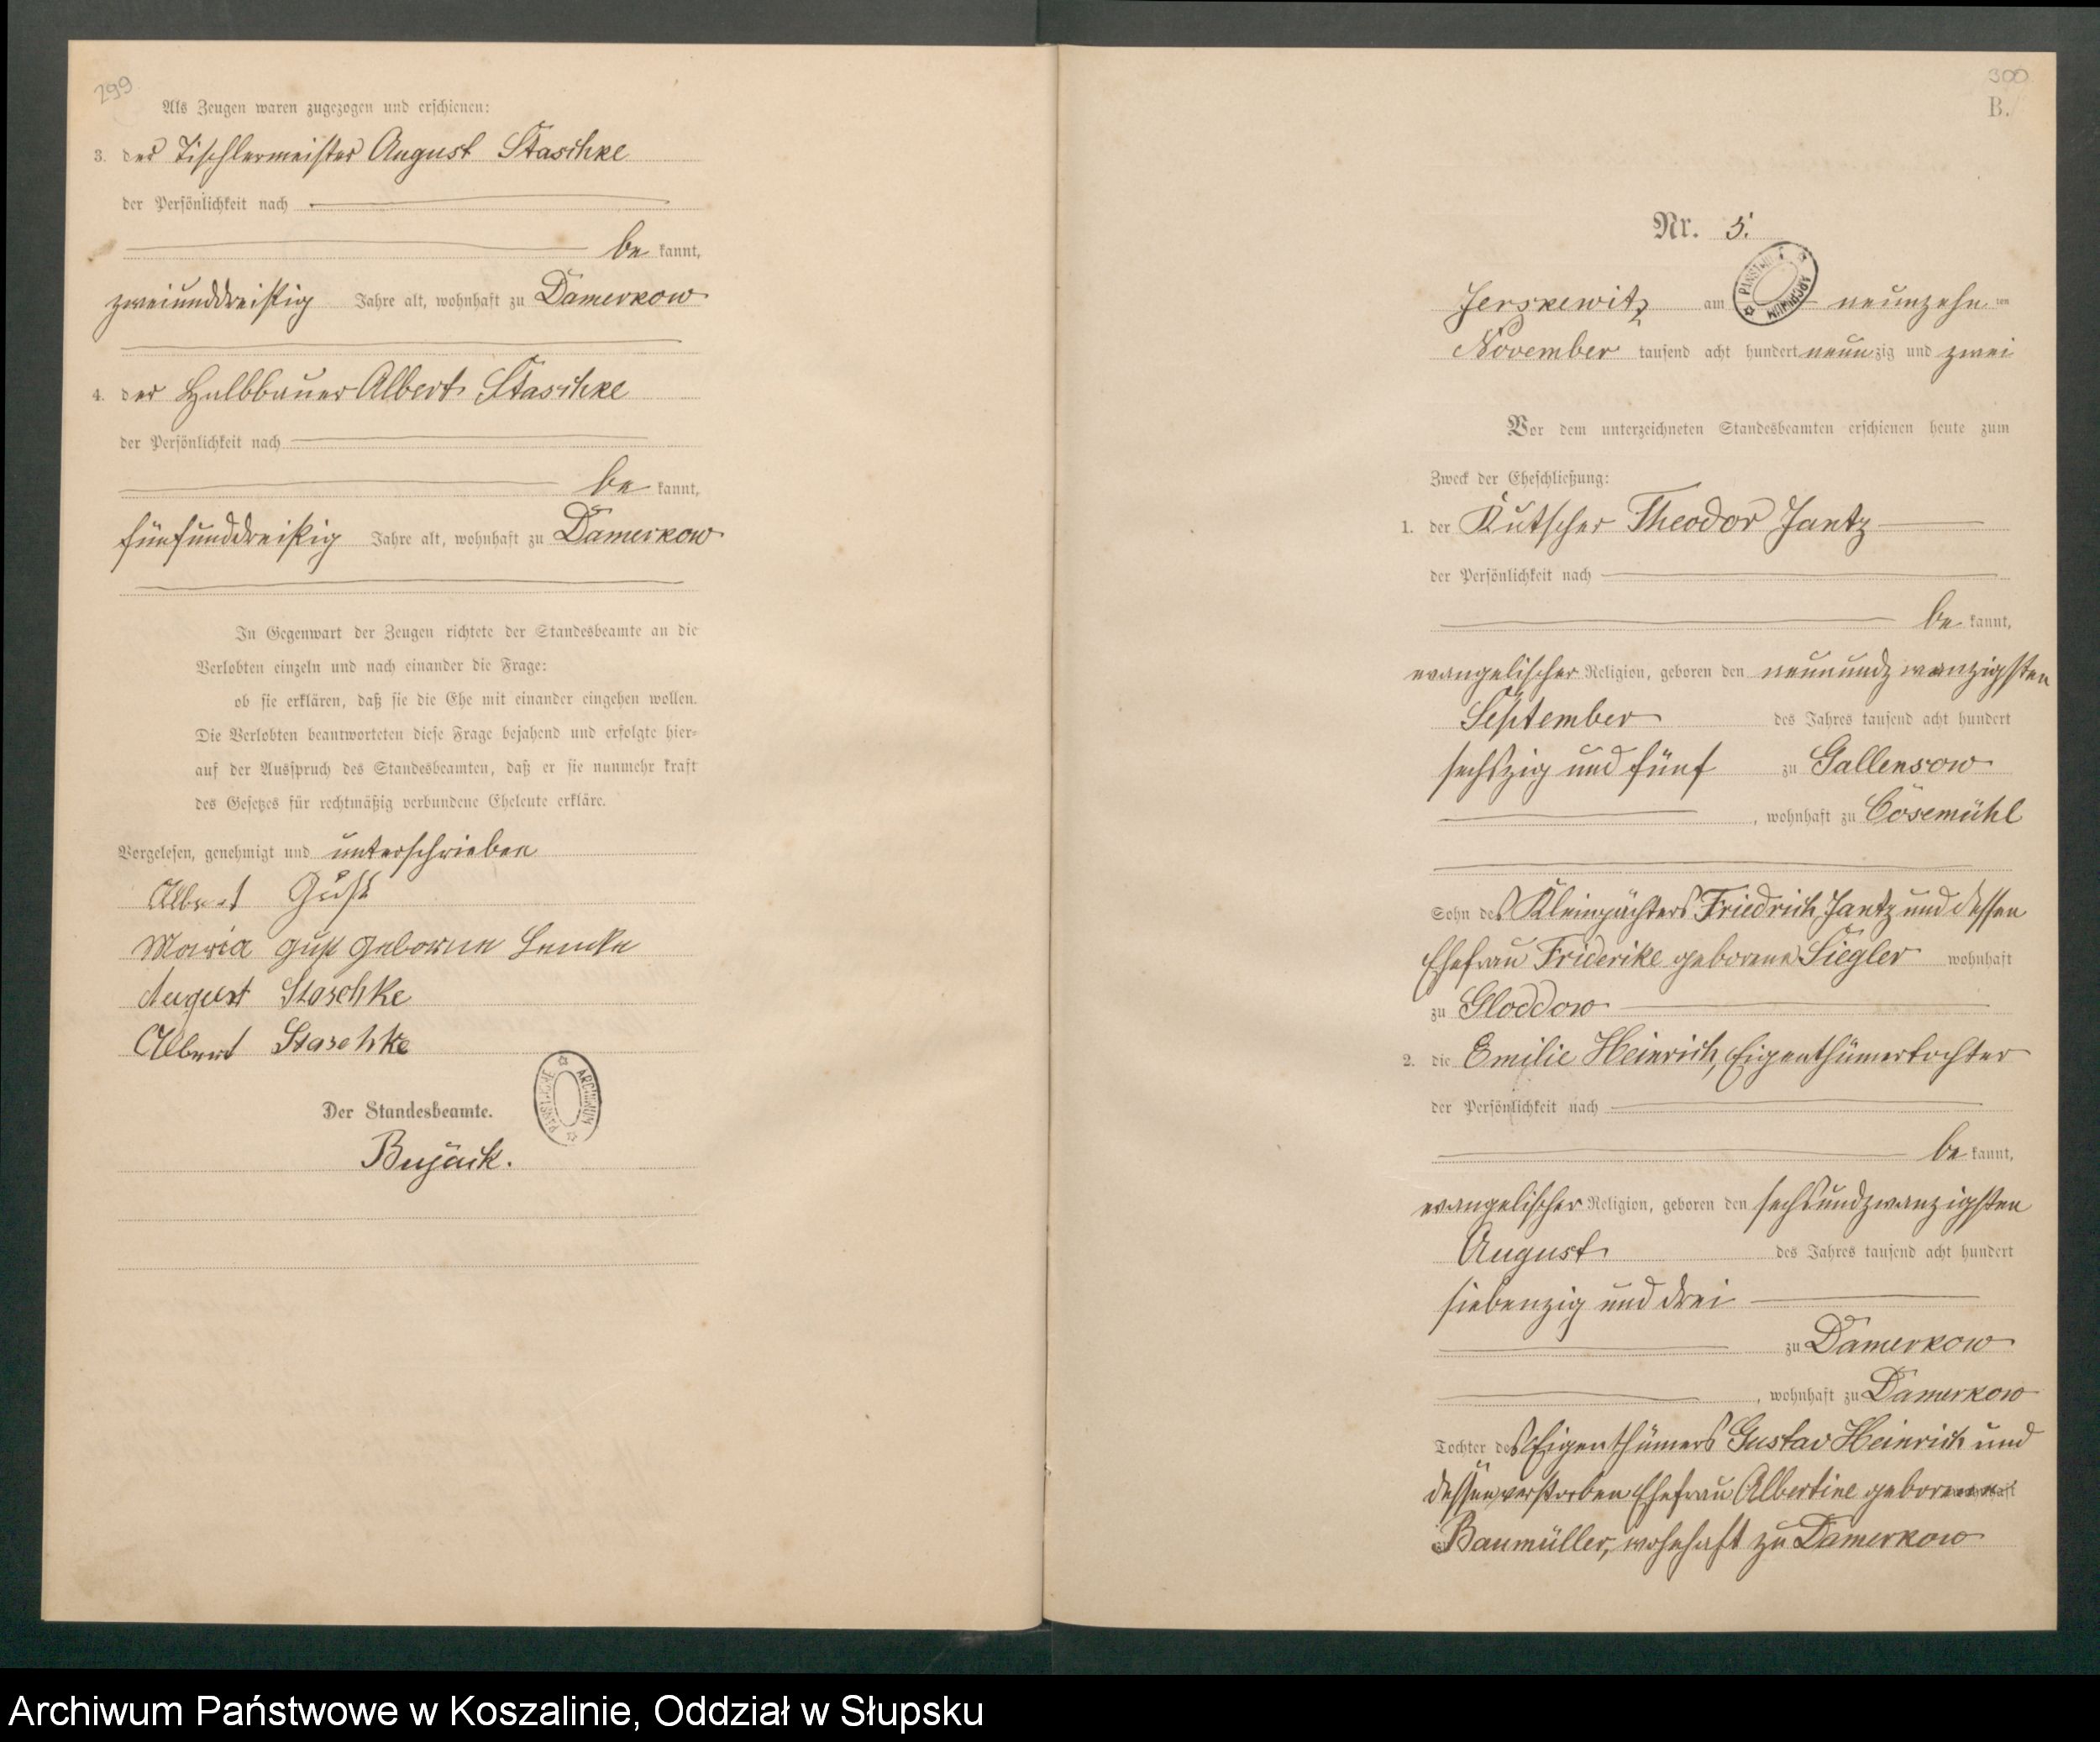 299
Als Zeugen waren zugezogen und erschienen:
3. der Tischlermeister August Staschke
der Persönlichkeit nach
be kannt,
zweiunddreißig Jahre alt, wohnhaft zu Damerkow
4. der Halbbauer Albert Staschke
der Persönlichkeit nach
be kannt,
fünfunddreißig Jahre alt, wohnhaft zu Damerkow
In Gegenwart der Zeugen richtete der Standesbeamte an die
Verlobten einzeln und nach einander die Frage:
ob sie erklären, daß sie die Ehe mit einander eingehen wollen.
Die Verlobten beantworteten diese Frage bejahend und erfolgte hier-
auf der Ausspruch des Standesbeamten, daß er sie nunmehr kraft
des Gesetzes für rechtmäßig verbundene Eheleute erkläre.
Vorgelesen, genehmigt und unterschrieben
Albert Gust
Maria Gust geborne Lemke
August Staschke
Albert Staschke
PAŃSTWOWE ARCHIWUM
Der Standesbeamte.
Bujack.
300
B.
Nr. 5.
Jerskewitz am neunzehn ten
PAŃSTWOWE ARCHIWUM
November tausend acht hundert neunzig und zwei
Vor dem unterzeichneten Standesbeamten erschienen heute zum
Zweck der Eheschließung:
1. der Kutscher Theodor Jantz
der Persönlichkeit nach
be kannt,
evangelischer Religion, geboren den neunundzwanzigsten
September des Jahres tausend acht hundert
sechszig und fünf zu Gallensow
, wohnhaft zu Cösemühl
Sohn des Kleinpächters Friedrich Jantz und dessen
Ehefrau Friderike geborene Siegler wohnhaft
zu Gloddow
2. die Emilie Heinrich, Eigenthümertochter
der Persönlichkeit nach
be kannt,
evangelischer Religion, geboren den sechsundzwanzigsten
August des Jahres tausend acht hundert
siebenzig und drei
zu Damerkow
, wohnhaft zu Damerkow
Tochter des Eigenthümers Gustav Heinrich und
dessen verstorben Ehefrau Albertine geborenen wohnhaft
zu Baumüller, wohnhaft zu Damerkow
Archiwum Państwowe w Koszalinie, Oddział w Słupsku